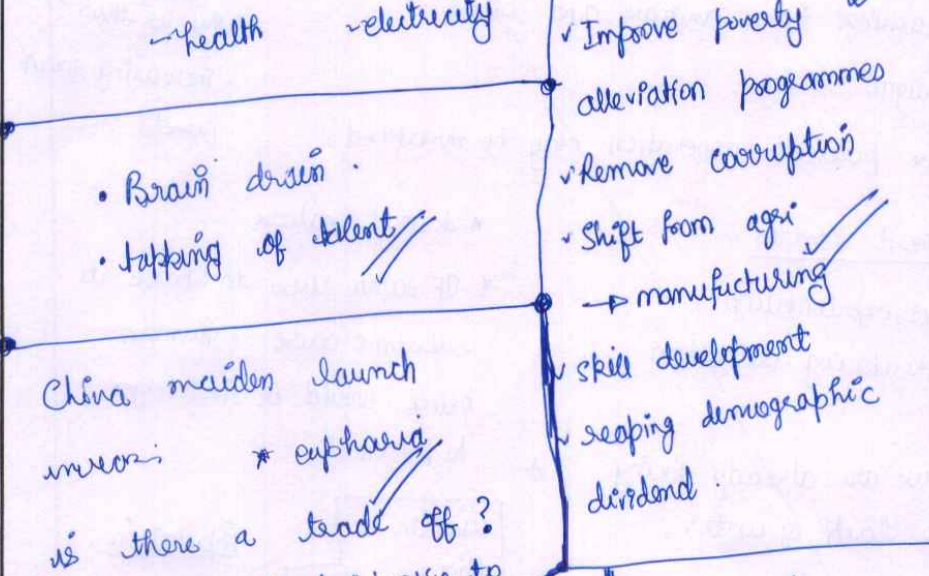 →health -electricity
• Brain drain.
• tapping of talent
China maiden launch
* euphoria
is there a trade off?
✓Improve poverty
alleviation programmes
✓Remove corruption
✓Shift from agri
→ manufacturing
✓ skill development
✓ reaping demographic
dividend